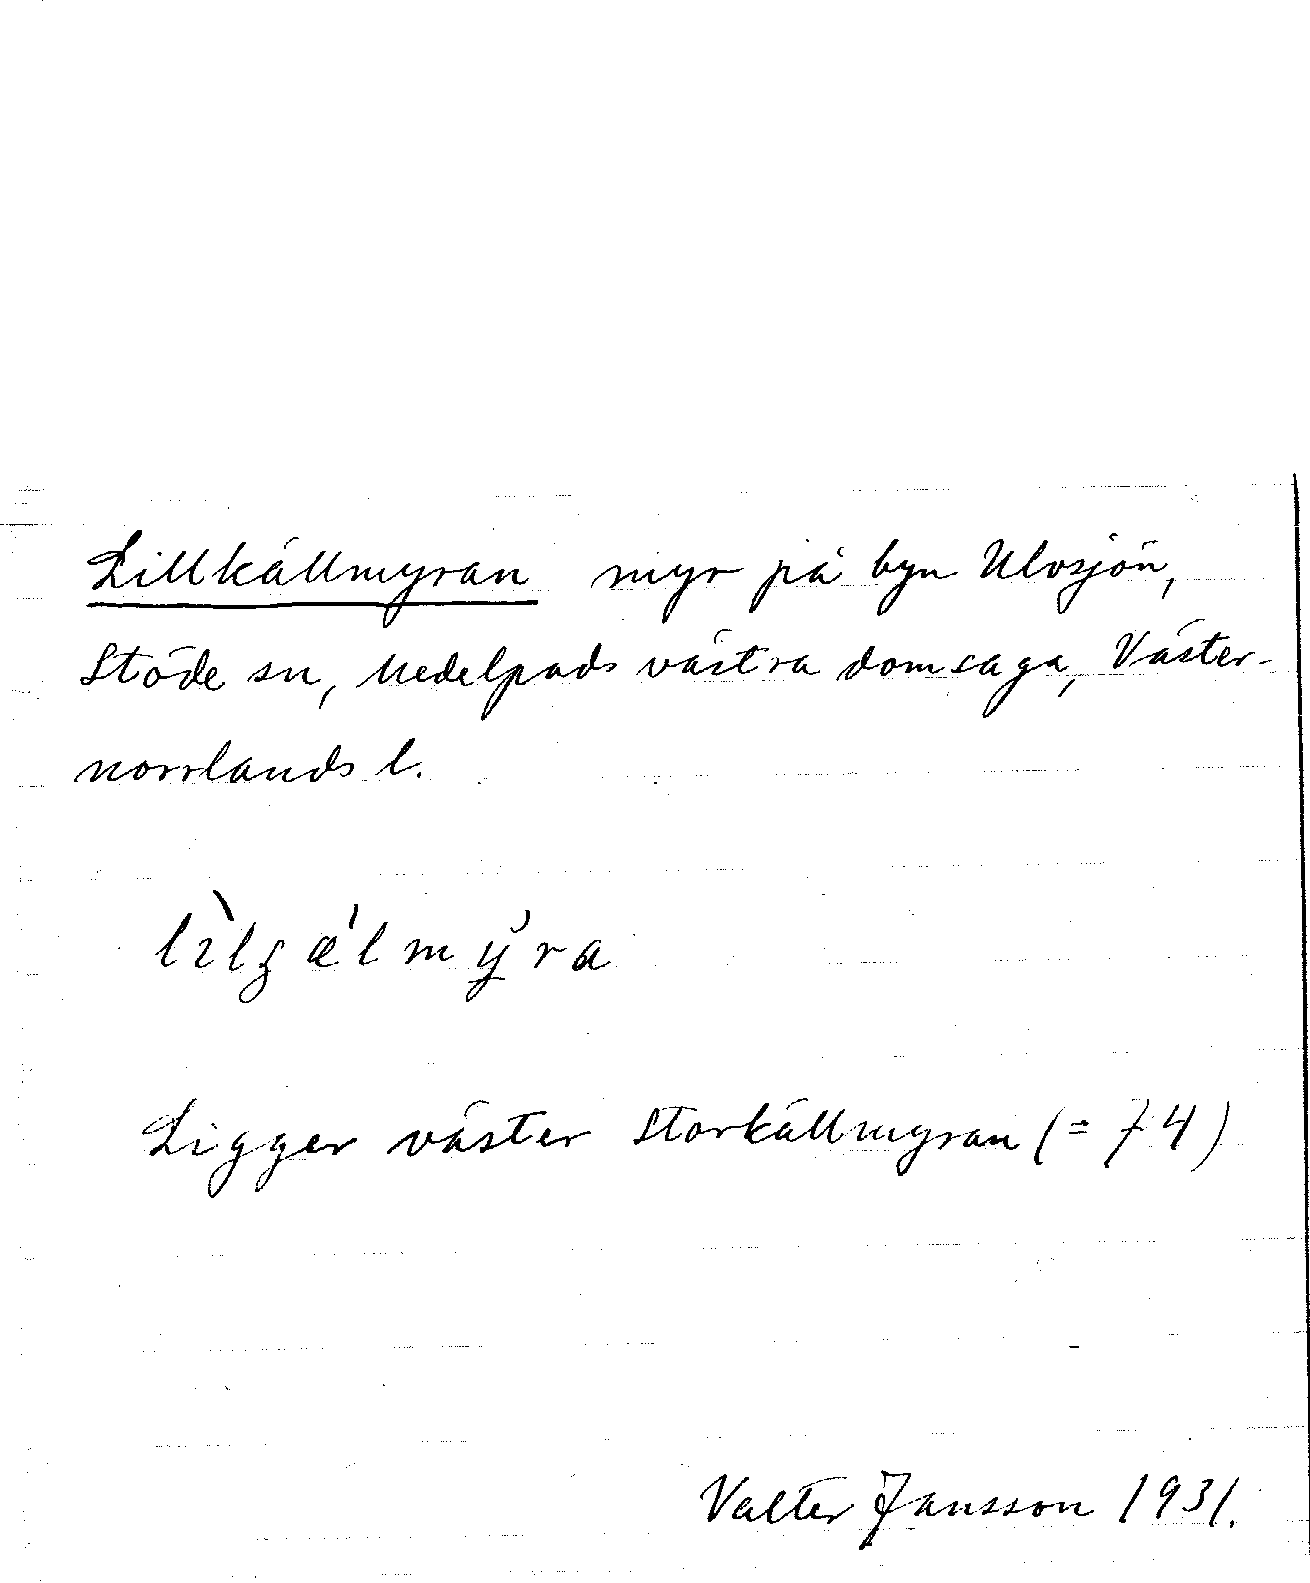 Lillkällmyran myr på byn Ulvsjön,
Stöde sn, Medelpads västra domsaga, Väster-
norrlands l.
Ligger väster Storkällmyran (= 74)
Valter Jansson 1931.